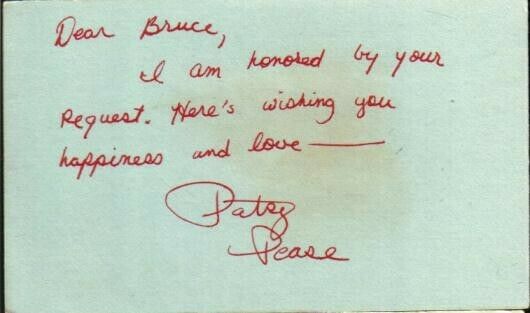 Dear Bruce,
I am honored by your
request. Here's wishing you
happiness and love —
Patsy
Pease